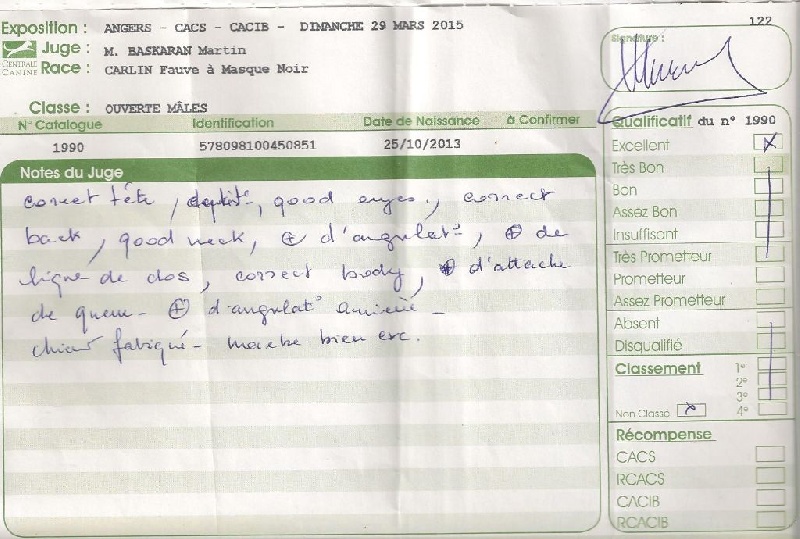 122
Exposition : ANGERS - CACS - CACIB - DIMANCHE 29 MARS 2015
Juge : M. BASKARAN Martin
CENTRALE CANINE
Race : CARLIN Fauve à Masque Noir
Signature :
Classe : OUVERTE MÂLES
N° Catalogue Identification Date de Naissance à Confirmer
1990 578098100450851 25/10/2013
Notes du Juge
correct tête, good eyes, correct
back, good neck, ⊕ d'angulat°, ⊕ de
ligne de dos, correct body, ⊕ d'attache
de queue - ⊕ d'angulat°
chien fatigué - marche bien
Qualificatif du n° 1990
Excellent X
Très Bon
Bon
Assez Bon
Insuffisant
Très Prometteur
Prometteur
Assez Prometteur
Absent
Disqualifié
Classement 1°
2°
3°
Non Classé X 4°
Récompense
CACS
RCACS
CACIB
RCACIB